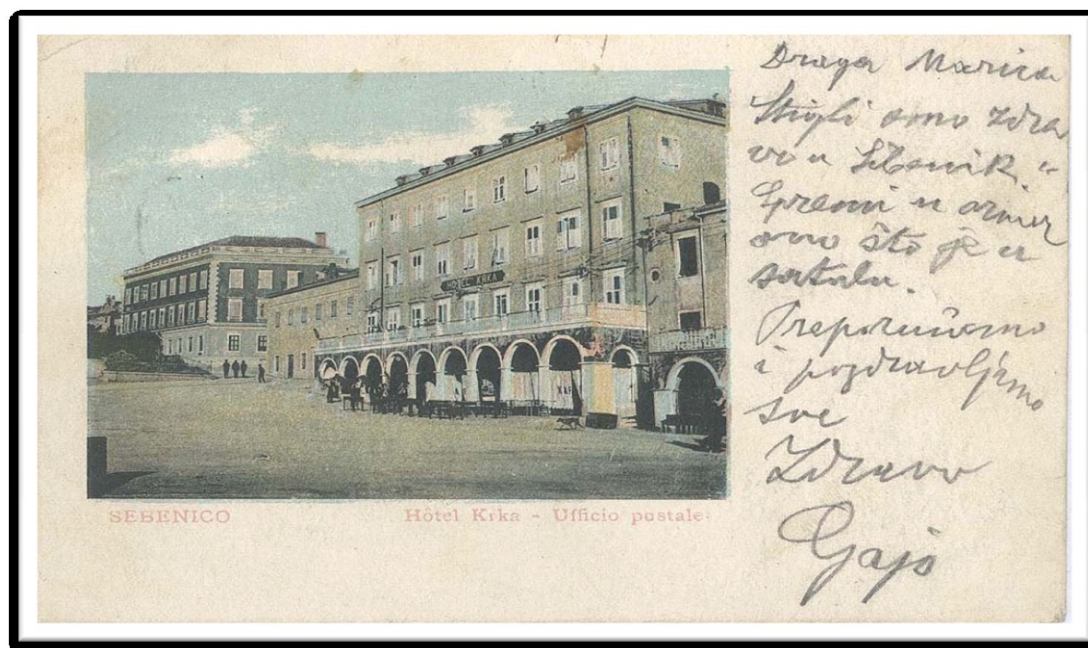 HOTEL KRKA
SEBENICO
Hôtel Krka - Ufficio postale.
Draga Marica
Stigli smo zdra
vo u Šibenik.
Spremi u ormar
ono što je u
Preporučamo
i pozdravljamo
sve
Zdravo
Gajo